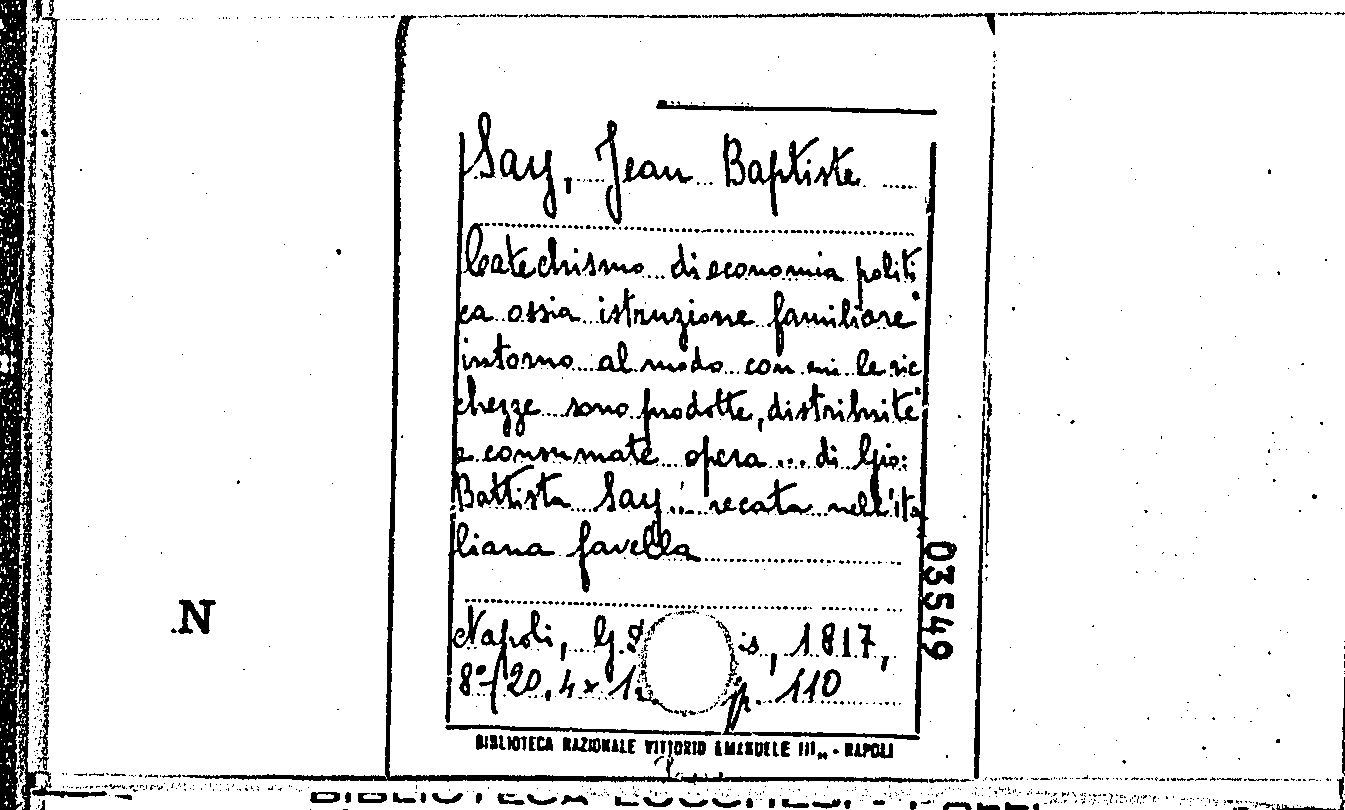 Say, Jean Baptiste
Catechismo di economia politi
ca ossia istruzione familiare
intorno al modo con cui le ric
chezze sono prodotte, distribuite
e consumate opera ... di Gio:
Battista Say ... recata nell'ita
liana favella
Napoli, G. is, 1817,
8º (20,4 x 1 p. 110
03549
N
BIBLIOTECA NAZIONALE VITTORIO EMANUELE III„ - NAPOLI
BIBLIOTECA